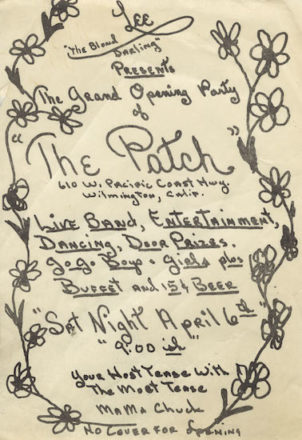 Lee
"The Blond Darling"
Presents
The Grand Opening Party
of
"The Patch"
610 W. Pacific Coast Hwy.
Wilmington, Calif.
Live Band, Entertainment,
Dancing, Door Prizes.
Go-Go Boys & Girls plus
Buffet and 15¢ Beer
"Sat Night April 6th"
"9:00 ish"
Your Host Tease With
The Most Tease
Mama Chuck
No Cover for Opening